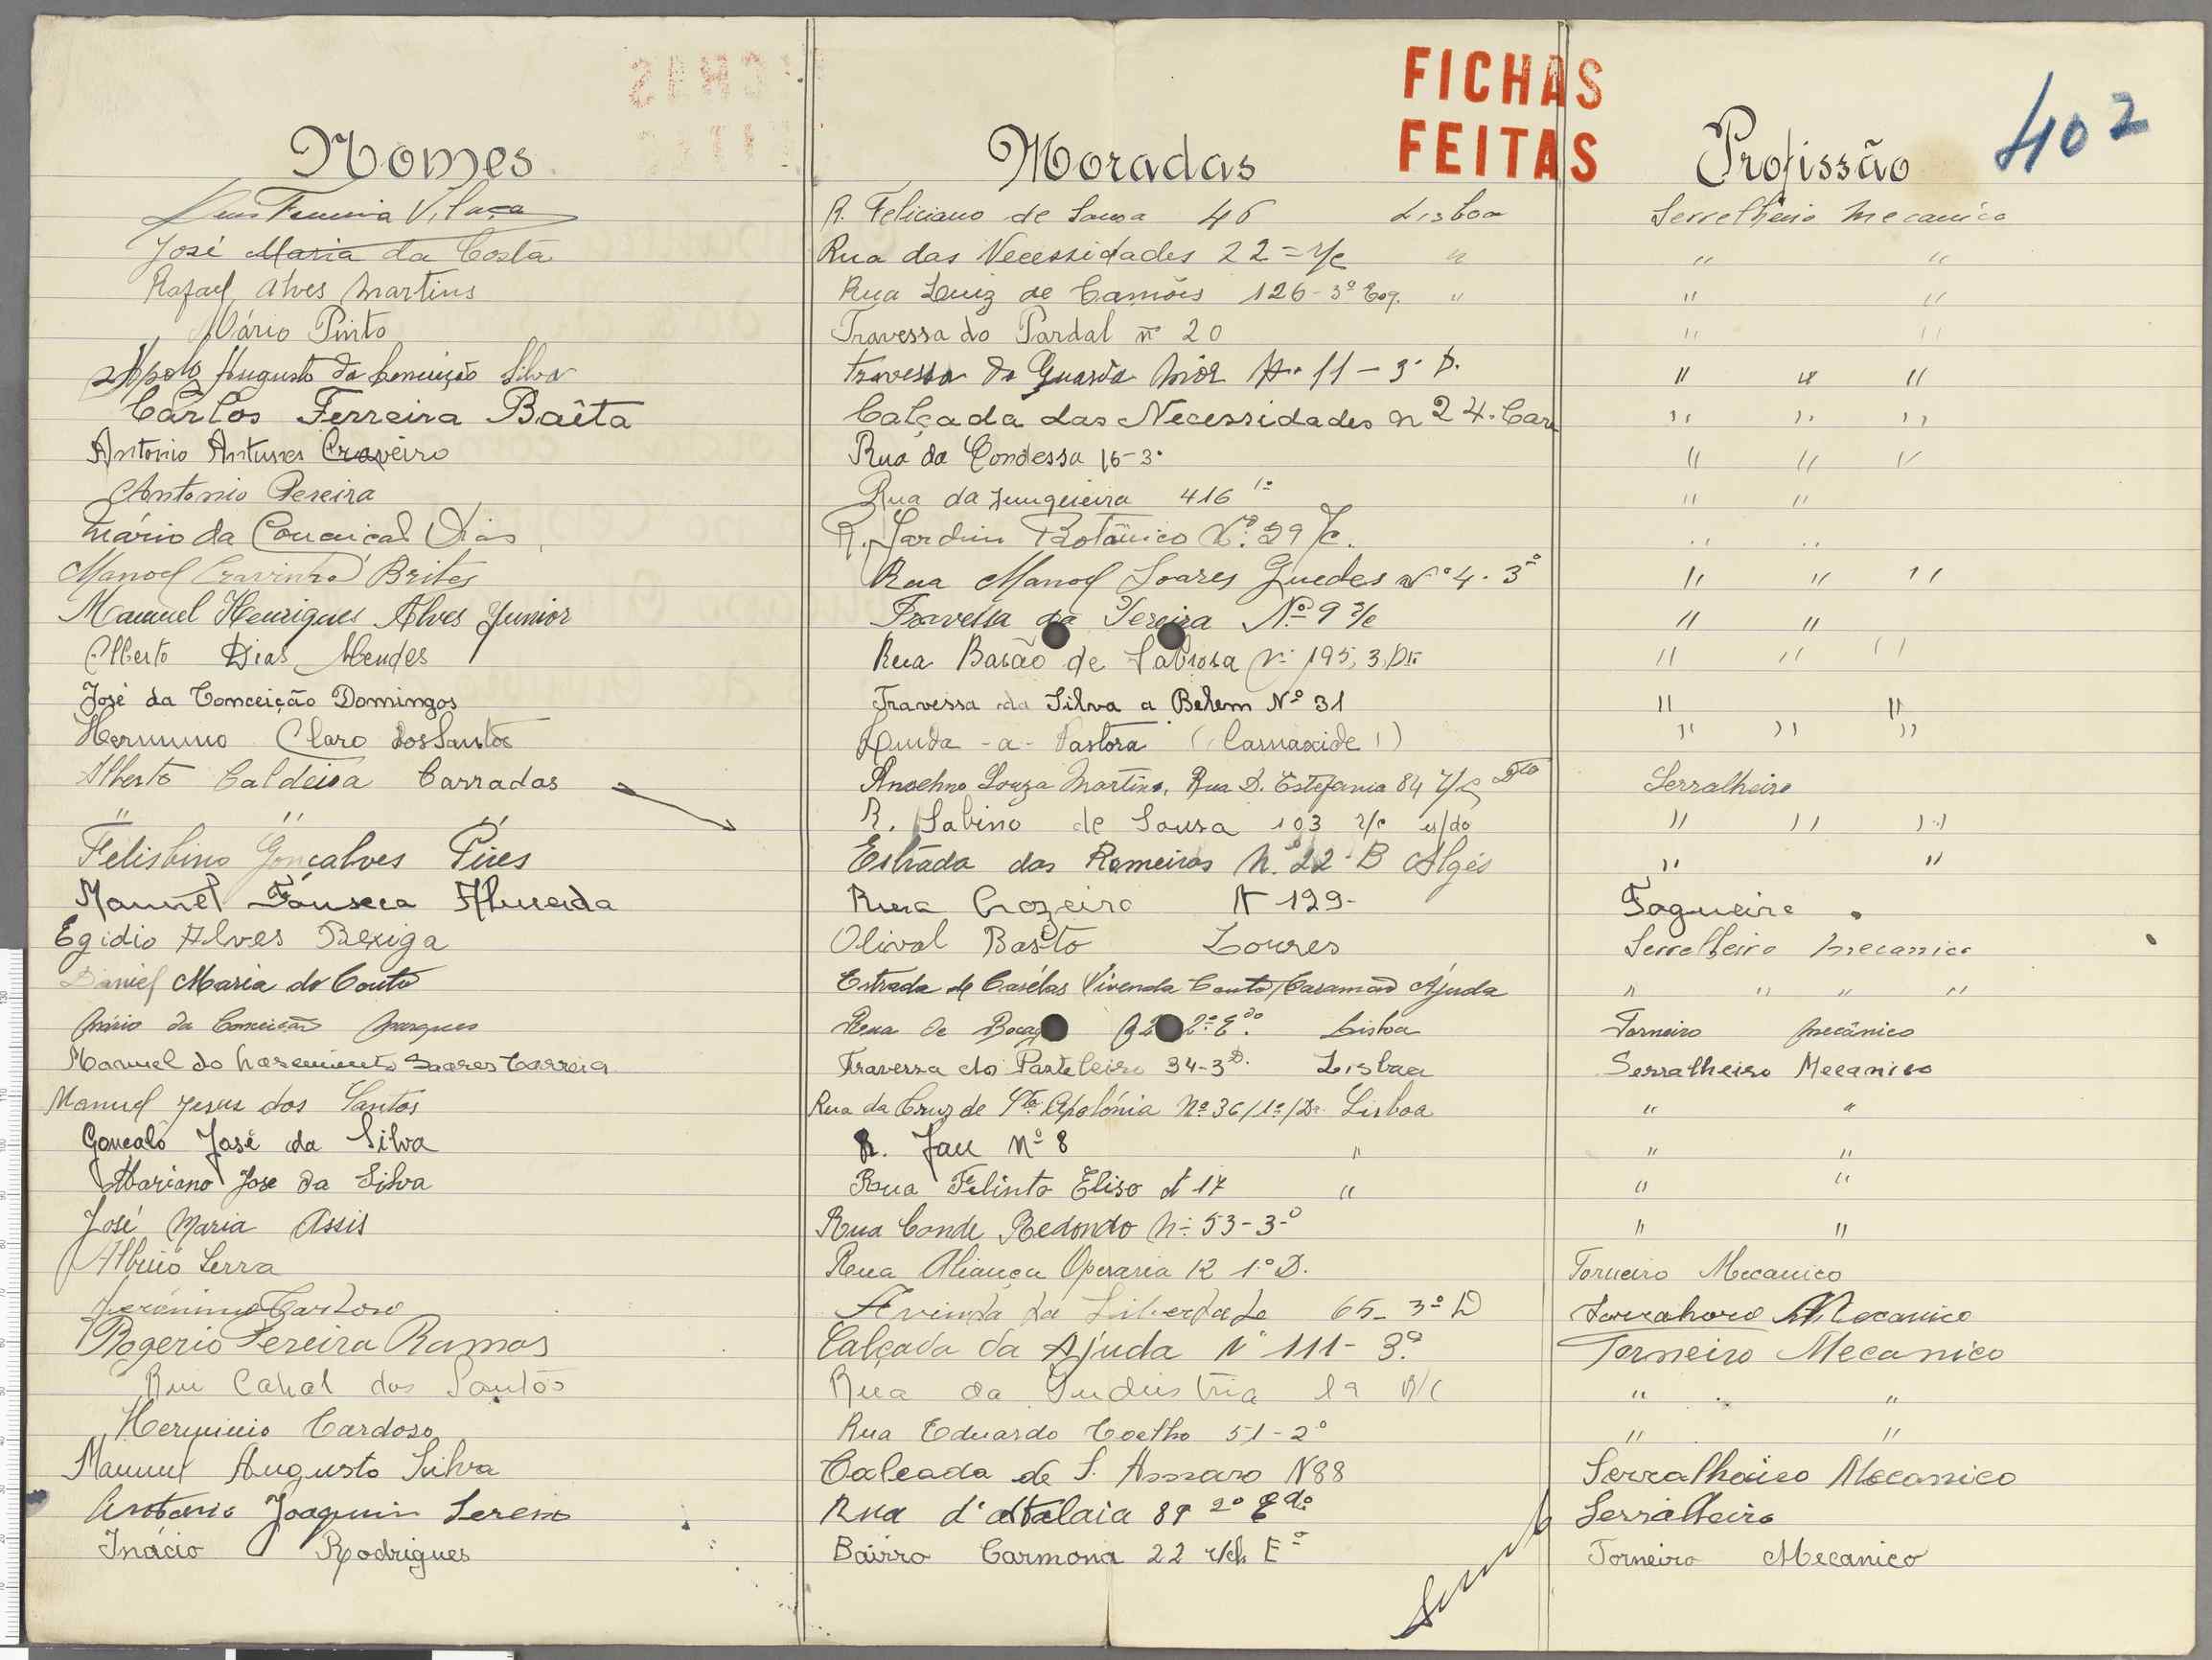 FICHAS
FEITAS
402
Nomes Moradas Profissão
Luis Ferreira Vilaça R. Feliciano de Sousa 46 Lisboa Serrelheiro Mecanico
José Maria da Costa Rua das Necessidades 22 = r/c " " "
Rafael Alves Martins Rua Luiz de Camões 126-3º Esq. " " "
Mário Pinto Travessa do Pardal nº 20 " "
Augusto da Conceição Silva travessa do Guarda Mór Nº 11-3º D. " " "
Carlos Ferreira Baêta Calçada das Necessidades n 24. Cave " " "
Antonio Antunes Craveiro Rua da Condessa 16-3º " " "
Antonio Pereira Rua da Junqueira 416 1º " "
Mário da Conceição Dias R. Jardim Botânico Nº 39 r/c. " "
Manoel Cravinho Brites Rua Manoel Soares Guedes Nº 4. 3º " " "
Manuel Henriques Alves Junior Travessa da Pereira Nº 9 r/c " "
Alberto Dias Mendes Rua Barão de Sabrosa Nº 195, 3, Dtº " " "
José da Conceição Domingos Travessa da Silva a Belem Nº 31 " "
Claro dos Santos Linda-a-Pastora (Carnaxide) " " "
Alberto Caldeira Carradas Anselmo Souza Martins, Rua D. Estefania 84 r/c Dto Serralheiro
" " " R. Sabino de Sousa 103 r/c e/do " " "
Felisbino Gonçalves Pires Estrada das Romeiras N. 22-B Algés " "
Manuel Fonseca Almeida Rua Cozeiro N 129- Fogueiro
Egidio Alves Bexiga Olival Basto Loures Serrelheiro Mecanico
Daniel Maria do Couto Estrada de Casélas Vivenda Couto Caramão Ajuda " " " "
Mário da Conceição Marques Rua de 2º Edo. Lisboa Torneiro Mecânico
Manuel do Nascimento Soares Correia Travessa do Pasteleiro 34-3º D. Lisboa Serralheiro Mecanico
Manuel Jesus dos Santos Rua da Cruz de Stª Apolónia Nº 36/1º/Dº Lisboa " "
Gonçalo José da Silva R. Jau Nº 8 " " "
Mariano Jose da Silva Rua Felinto Eliso Nº 17 " " "
José Maria Assis Rua Conde Redondo Nº 53-3º " "
Albino Serra Rua Aliança Operaria 12 1º D. Torneiro Mecanico
Jerónimo Cardoso Avenida da Liberdade 65-3º D Serrahoro Mecanico
Rogerio Pereira Ramos Calçada da Ajuda Nº 111-3º Torneiro Mecanico
Rui Cabral dos Santos Rua da Industria 19 R/C " "
Herminio Cardoso Rua Eduardo Coelho 51-2º " "
Manuel Augusto Silva Calcada de S. Amaro N88 Serralheiro Mecanico
Antonio Joaquim Sereno Rua d'Atalaia 89 2º Edº Serralheiro
Inácio Rodrigues Bairro Carmona 22 r/ch Eº Torneiro Mecanico